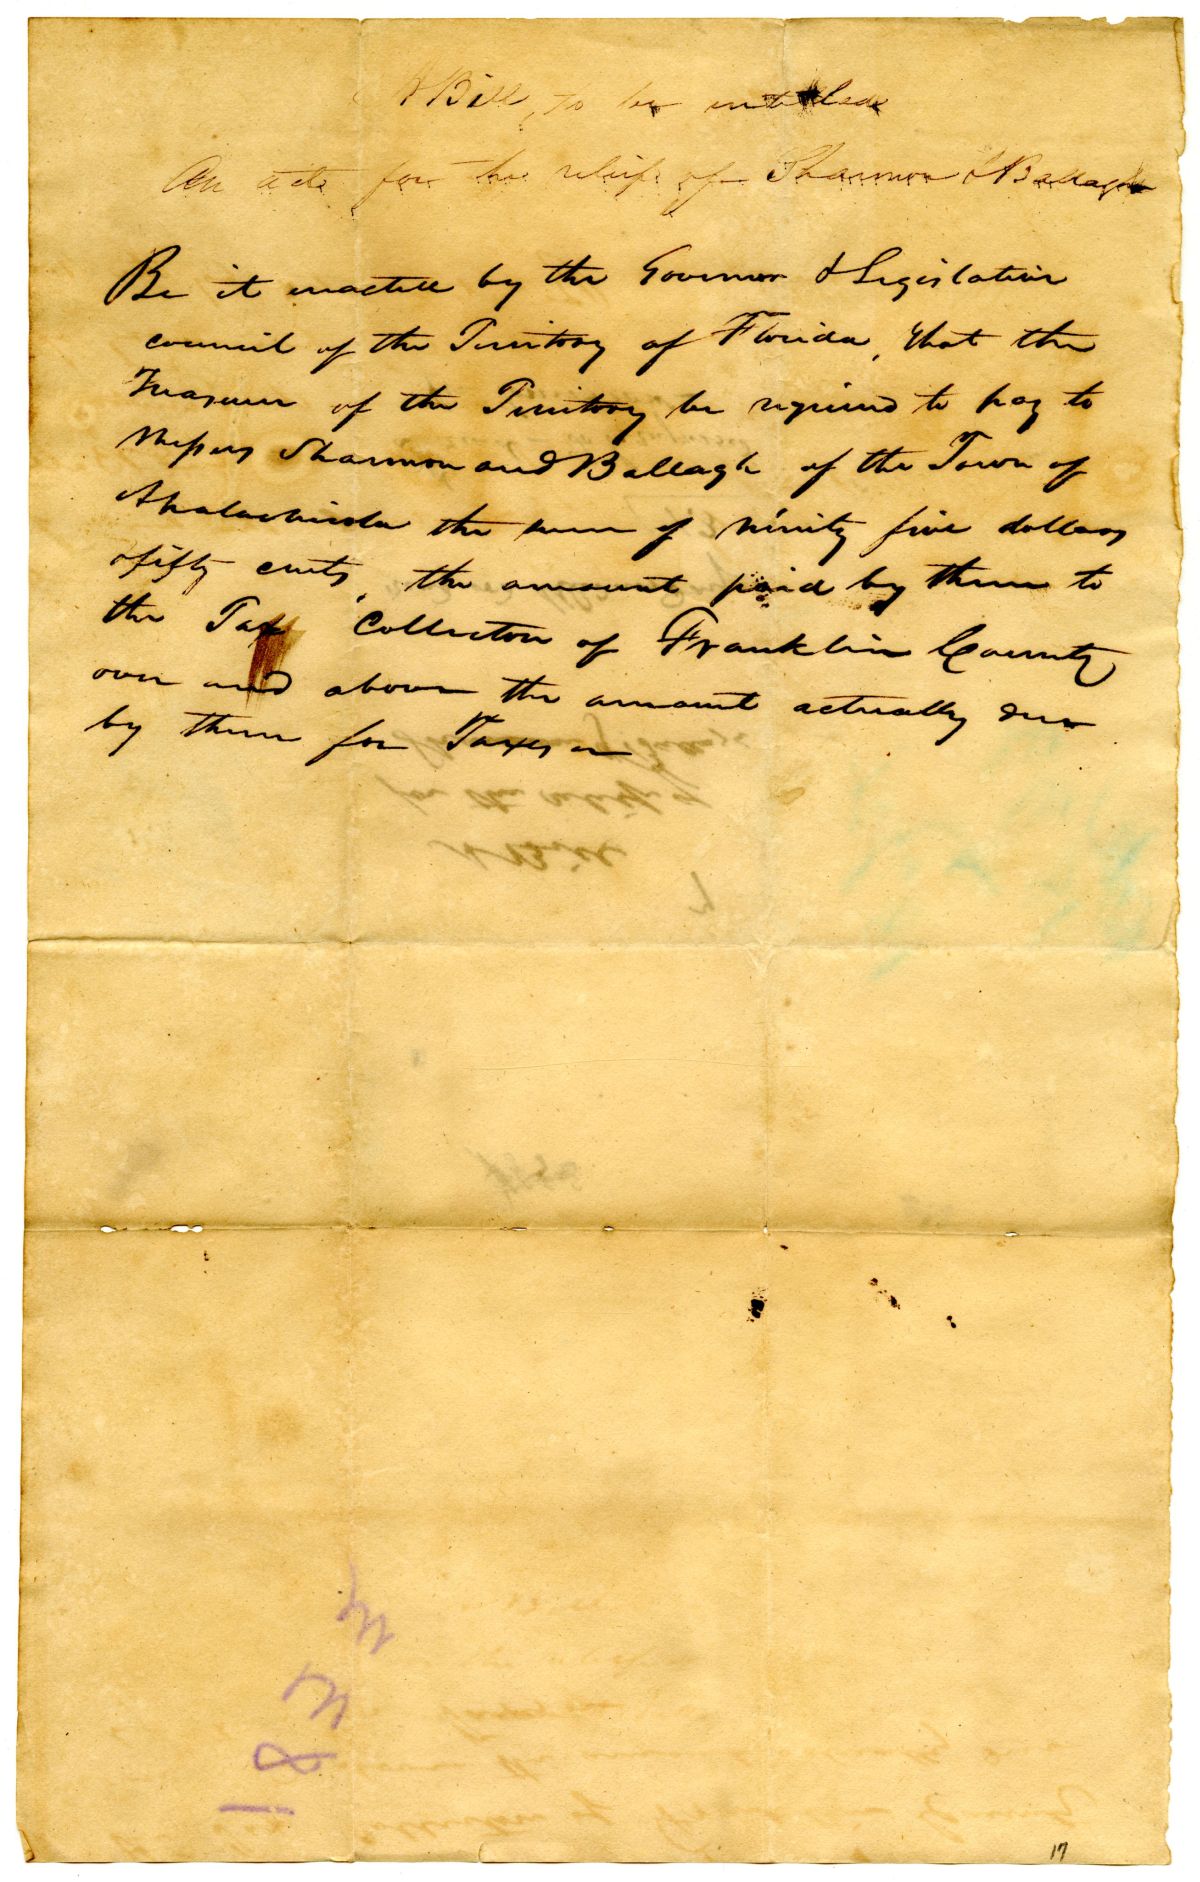 A Bill, to be entitled
An act for the relief of Shannon & Ballagh
Be it enacted by the Governor & Legislative
council of the Territory of Florida, that the
Treasurer of the Territory be required to pay to
Messrs Shannon and Ballagh of the Town of
Apalachicola the sum of ninity five dollars
&fifty cents, the amount paid by them to
the Tax Collector of Franklin County
over and above the amount actually due
by them for Taxes
for the relief of
A Bill
17